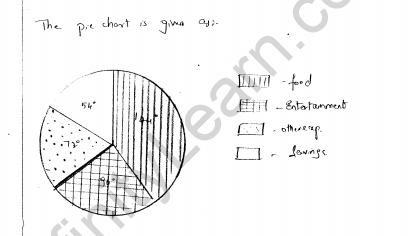 The pie chart is given as:-
54°
144°
72°
90°
- food
- Entertainment
- other exp.
- Savings
infinityLearn.com